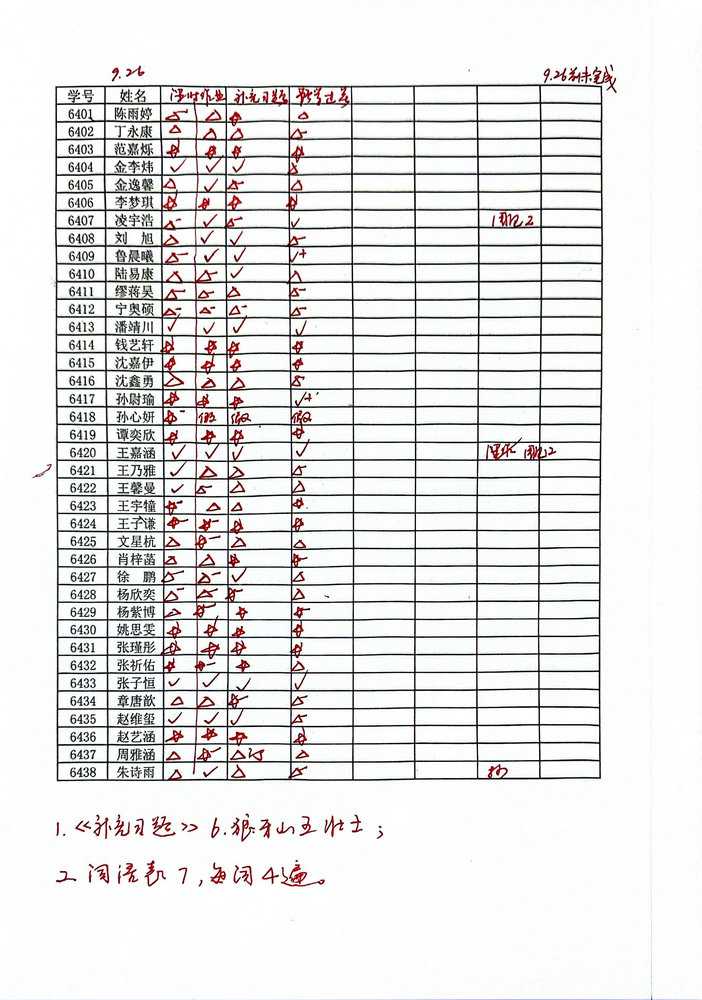 9.26 9.26前未完成
学号 姓名 课时作业 补充习题
6401 陈雨婷 △- △ ☆
6402 丁永康 △ △ △ △-
6403 范嘉烁 ☆ ☆ ☆ ☆
6404 金李炜 ✓ ✓ ✓
6405 金逸馨 △ ✓ △- △
6406 李梦琪 ☆ ☆ ☆ ☆
6407 凌宇浩 △- ✓ △- ✓ 2
6408 刘旭 △ ✓ ✓ △-
6409 鲁晨曦 △- ✓ ✓ ✓+
6410 陆易康 △ △- ✓ △
6411 缪蒋昊 △- △- △ △-
6412 宁奥硕 △- △- △- △-
6413 潘靖川 ✓ ✓ ✓ ✓
6414 钱艺轩 ☆ ☆ ☆ ☆
6415 沈嘉伊 ☆ ☆ ☆ ☆
6416 沈鑫勇 △ △ △ △-
6417 孙尉瑜 ☆ ☆ ☆ ✓+
6418 孙心妍 ☆- 假 假 假
6419 谭奕欣 ☆ ☆ ☆ ☆
6420 王嘉涵 ✓ ✓ ✓ ✓
6421 王乃雅 ✓ △ △ △-
6422 王馨曼 ✓ △- △ △
6423 王宇犝 ☆- △ △ ☆
6424 王子谦 ☆- ☆- ☆ ☆
6425 文星杭 △ ☆- △ △
6426 肖梓菡 △ △ ☆ ☆-
6427 徐鹏 △- △- ✓ △
6428 杨欣奕 △- △- ☆- △
6429 杨紫博 △ ☆- ☆ ☆-
6430 姚思雯 ☆ ☆ ☆ ☆
6431 张瑾彤 ☆ ☆ ☆ ☆
6432 张祈佑 ☆ ☆- ☆ △
6433 张子恒 ✓ ✓ ✓ ✓
6434 章唐歆 △ △ ☆- △-
6435 赵维玺 ✓ ✓ ✓ △-
6436 赵艺涵 ☆ ☆ ☆ ☆
6437 周雅涵 △ ☆- △订 △
6438 朱诗雨 △ ✓ △ △-
1.《补充习题》6.狼牙山五壮士；
2.词语表7，每词4遍。